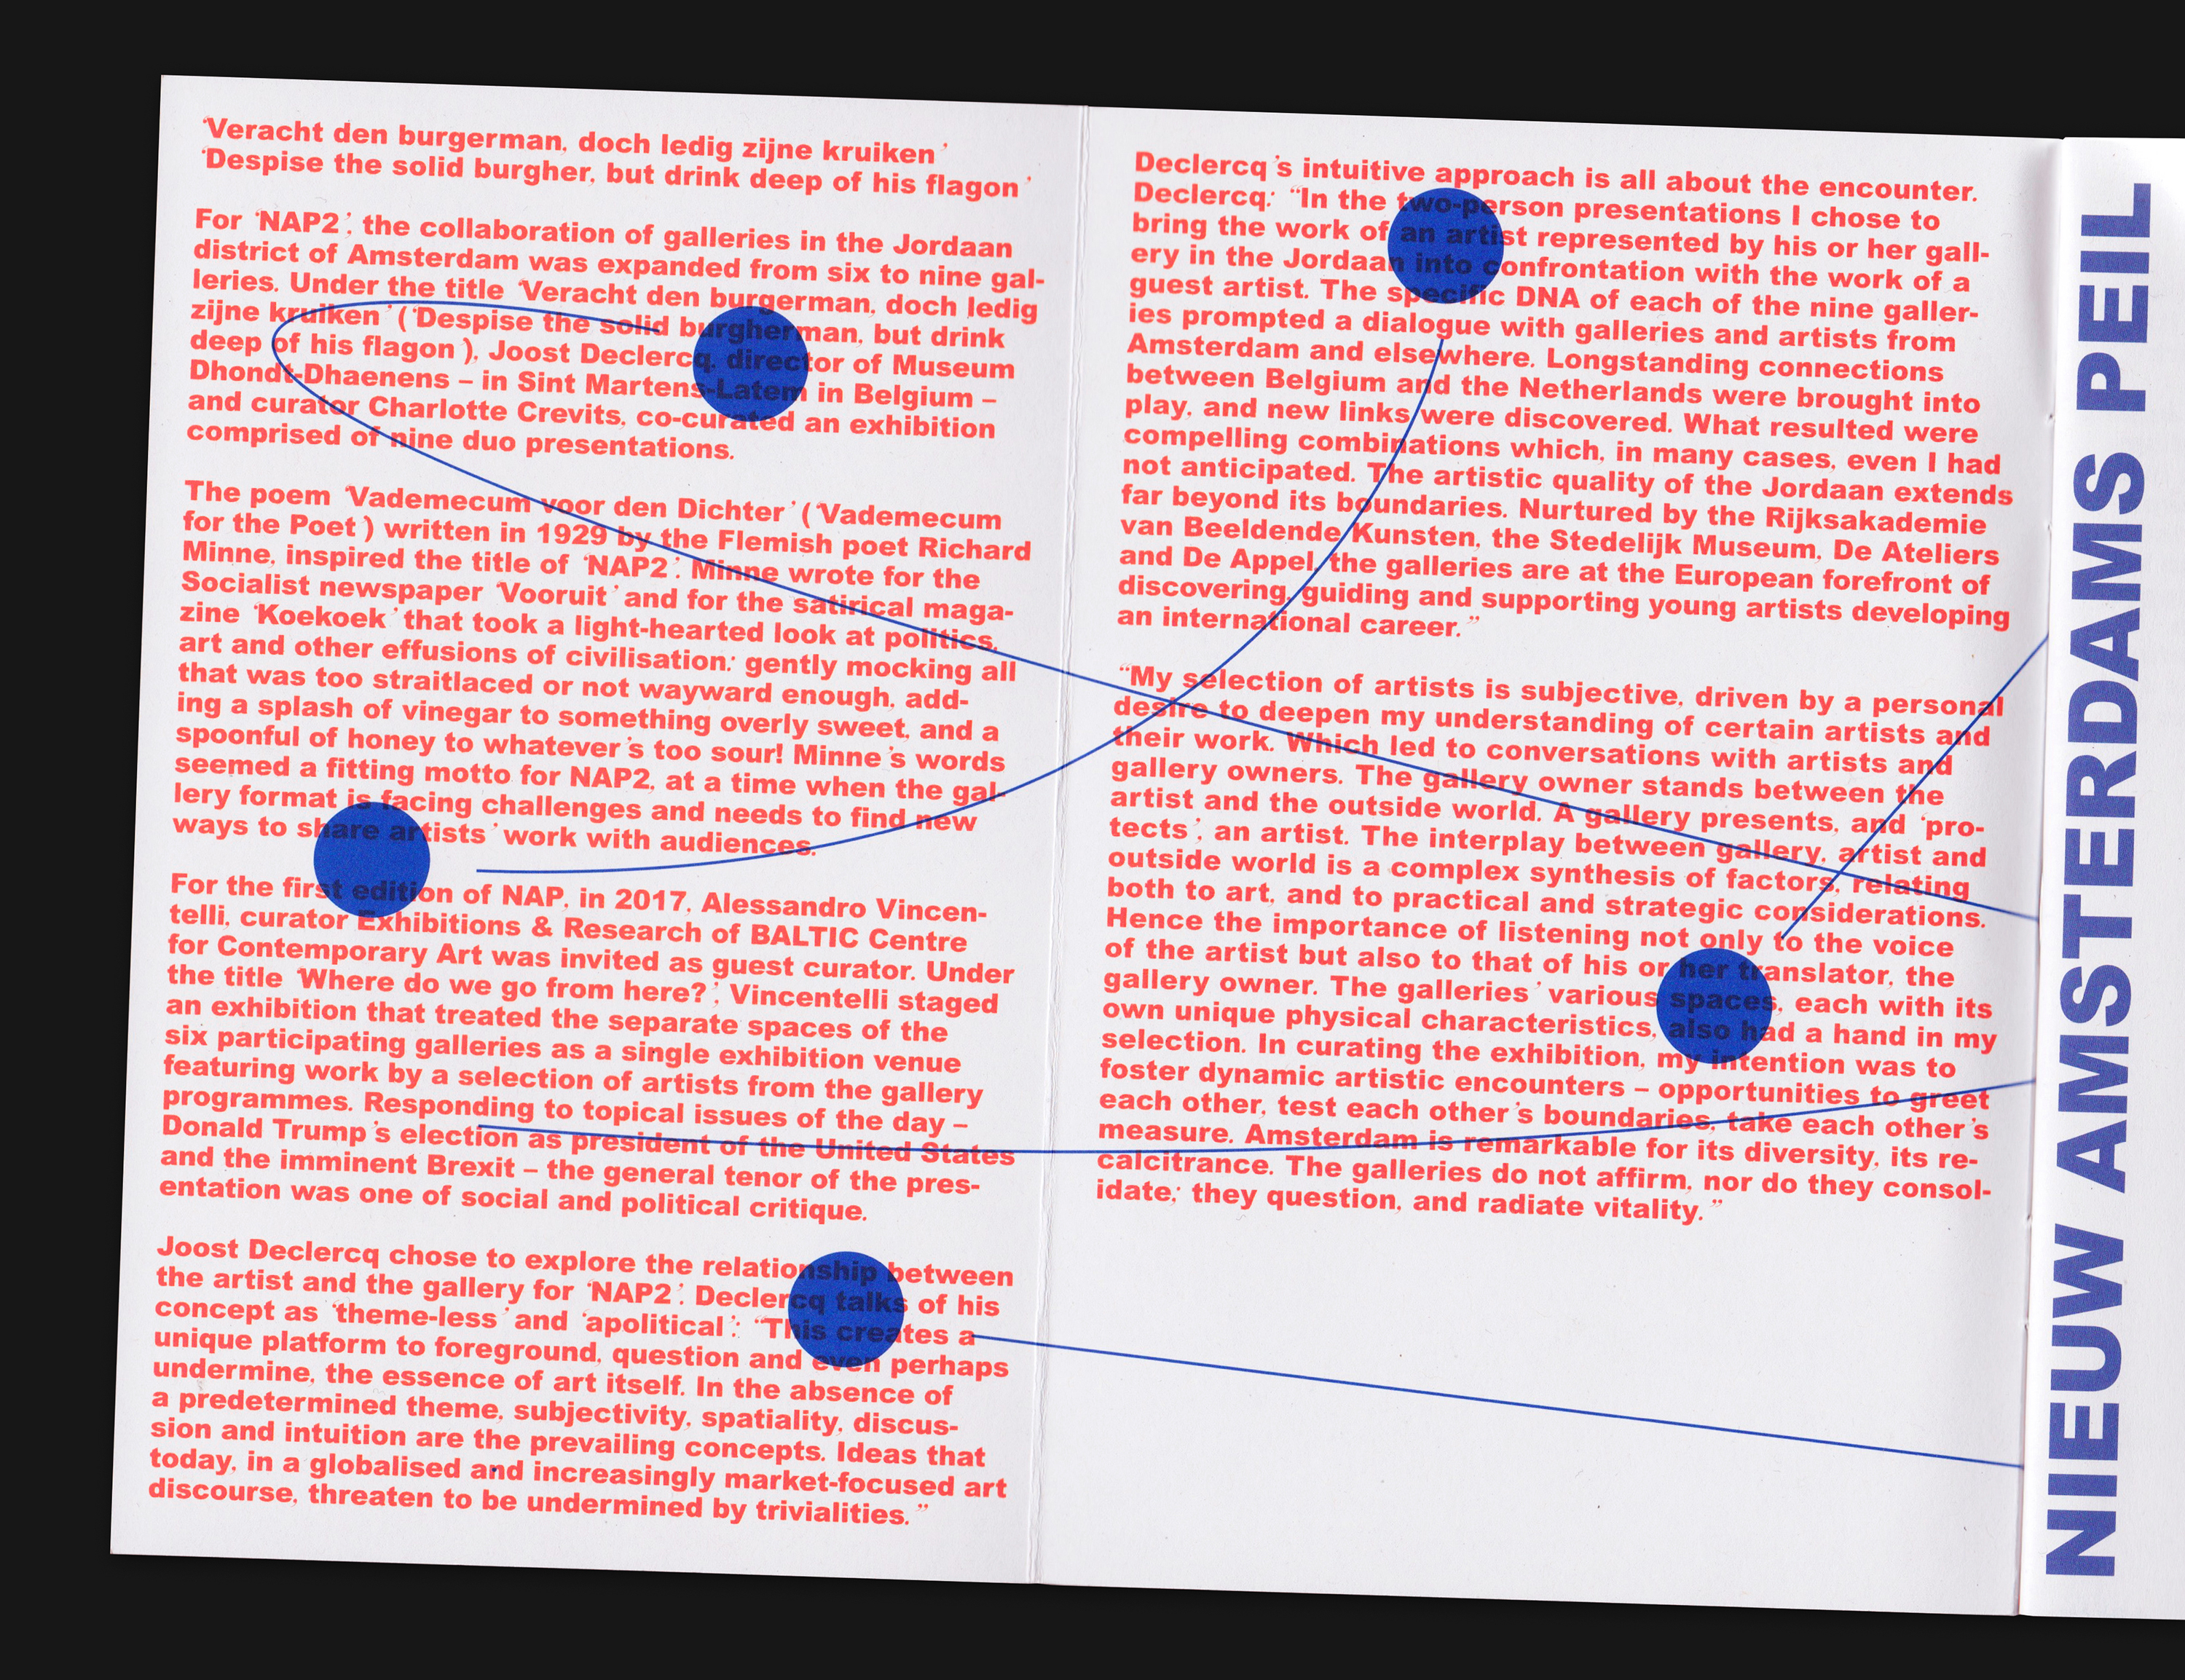 ‘Veracht den burgerman, doch ledig zijne kruiken’
‘Despise the solid burgher, but drink deep of his flagon’
For ‘NAP2’, the collaboration of galleries in the Jordaan
district of Amsterdam was expanded from six to nine gal-
leries. Under the title ‘Veracht den burgerman, doch ledig
zijne kruiken’ (‘Despise the solid burgherman, but drink
deep of his flagon’), Joost Declercq, director of Museum
Dhondt-Dhaenens – in Sint Martens-Latem in Belgium –
and curator Charlotte Crevits, co-curated an exhibition
comprised of nine duo presentations.
The poem ‘Vademecum voor den Dichter’ (‘Vademecum
for the Poet’) written in 1929 by the Flemish poet Richard
Minne, inspired the title of ‘NAP2’. Minne wrote for the
Socialist newspaper ‘Vooruit’ and for the satirical maga-
zine ‘Koekoek’ that took a light-hearted look at politics,
art and other effusions of civilisation: gently mocking all
that was too straitlaced or not wayward enough, add-
ing a splash of vinegar to something overly sweet, and a
spoonful of honey to whatever’s too sour! Minne’s words
seemed a fitting motto for NAP2, at a time when the gal-
lery format is facing challenges and needs to find new
ways to share artists’ work with audiences.
For the first edition of NAP, in 2017, Alessandro Vincen-
telli, curator Exhibitions & Research of BALTIC Centre
for Contemporary Art was invited as guest curator. Under
the title ‘Where do we go from here?’, Vincentelli staged
an exhibition that treated the separate spaces of the
six participating galleries as a single exhibition venue
featuring work by a selection of artists from the gallery
programmes. Responding to topical issues of the day –
Donald Trump’s election as president of the United States
and the imminent Brexit – the general tenor of the pres-
entation was one of social and political critique.
Joost Declercq chose to explore the relationship between
the artist and the gallery for ‘NAP2’. Declercq talks of his
concept as ‘theme-less’ and ‘apolitical’: “This creates a
unique platform to foreground, question and even perhaps
undermine, the essence of art itself. In the absence of
a predetermined theme, subjectivity, spatiality, discus-
sion and intuition are the prevailing concepts. Ideas that
today, in a globalised and increasingly market-focused art
discourse, threaten to be undermined by trivialities.”
Declercq’s intuitive approach is all about the encounter.
Declercq: “In the two-person presentations I chose to
bring the work of an artist represented by his or her gall-
ery in the Jordaan into confrontation with the work of a
guest artist. The specific DNA of each of the nine galler-
ies prompted a dialogue with galleries and artists from
Amsterdam and elsewhere. Longstanding connections
between Belgium and the Netherlands were brought into
play, and new links were discovered. What resulted were
compelling combinations which, in many cases, even I had
not anticipated. The artistic quality of the Jordaan extends
far beyond its boundaries. Nurtured by the Rijksakademie
van Beeldende Kunsten, the Stedelijk Museum, De Ateliers
and De Appel, the galleries are at the European forefront of
discovering, guiding and supporting young artists developing
an international career.”
“My selection of artists is subjective, driven by a personal
desire to deepen my understanding of certain artists and
their work. Which led to conversations with artists and
gallery owners. The gallery owner stands between the
artist and the outside world. A gallery presents, and ‘pro-
tects’, an artist. The interplay between gallery, artist and
outside world is a complex synthesis of factors, relating
both to art, and to practical and strategic considerations.
Hence the importance of listening not only to the voice
of the artist but also to that of his or her translator, the
gallery owner. The galleries’ various spaces, each with its
own unique physical characteristics, also had a hand in my
selection. In curating the exhibition, my intention was to
foster dynamic artistic encounters – opportunities to greet
each other, test each other’s boundaries, take each other’s
measure. Amsterdam is remarkable for its diversity, its re-
calcitrance. The galleries do not affirm, nor do they consol-
idate; they question, and radiate vitality.”
NIEUW AMSTERDAMS PEIL